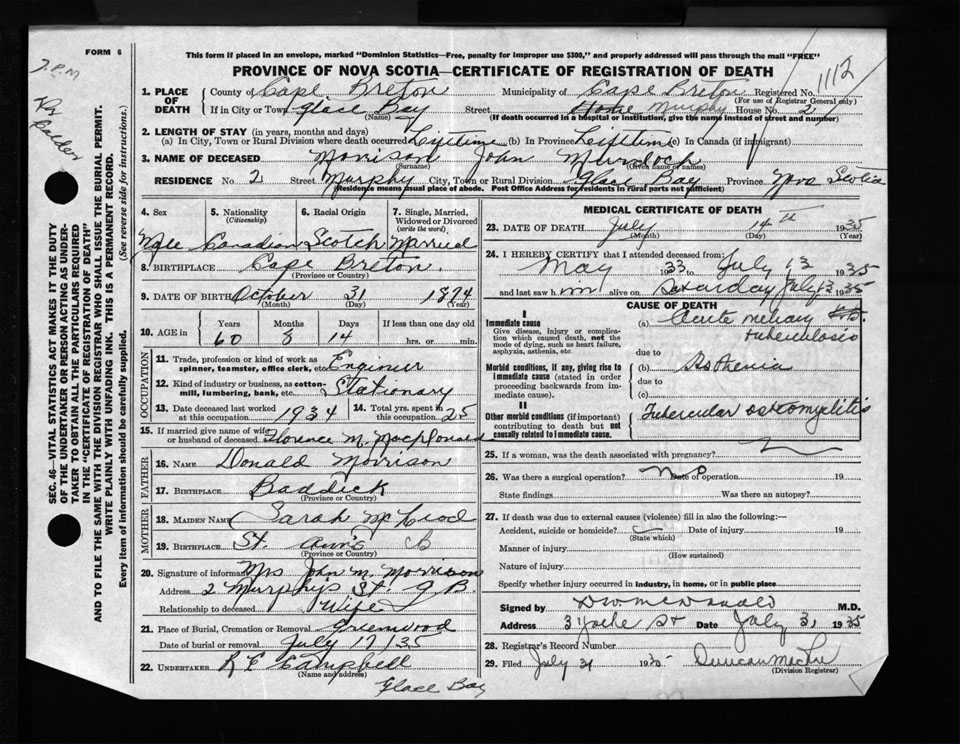 FORM 6
J.P.M
This form if placed in an envelope, marked "Dominion Statistics—Free, penalty for improper use $300," and properly addressed will pass through the mail "FREE"
PROVINCE OF NOVA SCOTIA—CERTIFICATE OF REGISTRATION OF DEATH
1112
SEC. 46—VITAL STATISTICS ACT MAKES IT THE DUTY OF THE UNDERTAKER OR PERSON ACTING AS UNDERTAKER TO OBTAIN ALL THE PARTICULARS REQUIRED IN THE "CERTIFICATE OF REGISTRATION OF DEATH"
AND TO FILE THE SAME WITH THE DIVISION REGISTRAR WHO SHALL ISSUE THE BURIAL PERMIT.
WRITE PLAINLY WITH UNFADING INK. THIS IS A PERMANENT RECORD.
Every item of information should be carefully supplied. (See reverse side for instructions.)
1. PLACE OF DEATH County of Cape Breton Municipality of Cape Breton Registered No.
(For use of Registrar General only)
If in City or Town Glace Bay Street Murphy House No. 2
(Name) (If death occurred in a hospital or institution, give the name instead of street and number)
2. LENGTH OF STAY (in years, months and days)
(a) In City, Town or Rural Division where death occurred Lifetime (b) In Province Lifetime (c) In Canada (if immigrant)
3. NAME OF DECEASED Morrison John Murdoch
(Surname) (Given name or names)
RESIDENCE No. 2 Street Murphy City, Town or Rural Division Glace Bay Province Nova Scotia
(Residence means usual place of abode. Post Office Address for residents in rural parts not sufficient)
4. Sex 5. Nationality (Citizenship) 6. Racial Origin 7. Single, Married, Widowed or Divorced (write the word)
Male Canadian Scotch Married
8. BIRTHPLACE Cape Breton.
(Province or Country)
9. DATE OF BIRTH October 31 1874
(Month) (Day) (Year)
10. AGE in Years Months Days If less than one day old
60 8 14 hrs. or min.
OCCUPATION
11. Trade, profession or kind of work as spinner, teamster, office clerk, etc. Engineer
12. Kind of industry or business, as cotton-mill, lumbering, bank, etc. Stationary
13. Date deceased last worked at this occupation 1934 14. Total yrs. spent in this occupation 25
15. If married give name of wife or husband of deceased Florence M. MacDonald
FATHER
16. NAME Donald Morrison
17. BIRTHPLACE Baddick
(Province or Country)
MOTHER
18. MAIDEN NAME Sarah McLeod
19. BIRTHPLACE St. Ann's CB
(Province or Country)
20. Signature of informant Mrs John M. Morrison
Address 2 Murphys St G.B.
Relationship to deceased Wife
21. Place of Burial, Cremation or Removal Greenwood
Date of burial or removal July 17/35
22. UNDERTAKER R E Campbell
(Name and address)
Glace Bay
MEDICAL CERTIFICATE OF DEATH
23. DATE OF DEATH July 14th 1935
(Month) (Day) (Year)
24. I HEREBY CERTIFY that I attended deceased from:
May 1933 to July 13 1935
and last saw him alive on Saturday July 13 1935
CAUSE OF DEATH
I
Immediate cause (a) Acute miliary tuberculosis
Give disease, injury or complication which caused death, not the mode of dying, such as heart failure, asphyxia, asthenia, etc.
due to
Morbid conditions, if any, giving rise to immediate cause (stated in order proceeding backwards from immediate). (b) Asthenia
due to
(c)
II
Other morbid conditions (if important) contributing to death but not causally related to immediate cause. Tubercular osteomyelitis
25. If a woman, was the death associated with pregnancy?
26. Was there a surgical operation? No Date of operation 19
State findings Was there an autopsy?
27. If death was due to external causes (violence) fill in also the following:—
Accident, suicide or homicide? Date of injury 19
(State which)
Manner of injury
(How sustained)
Nature of injury
Specify whether injury occurred in industry, in home, or in public place
Signed by D.W. McDonald M.D.
Address 3 Yorke St Date July 31 1935
28. Registrar's Record Number
29. Filed July 31 1935 Duncan
(Division Registrar)